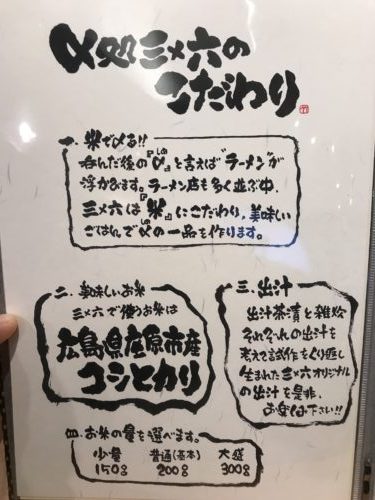 〆処三〆六の
こだわり
一. 米で〆る!!
呑んだ後の『〆』と言えば"ラーメン"が
浮かびます。ラーメン店も多く並ぶ中、
三〆六は『米』にこだわり、美味しい
ごはんで〆の一品を作ります。
二. 美味しいお米
三〆六で使うお米は
広島県庄原市産
コシヒカリ
三. 出汁
出汁茶漬と雑炊
それぞれの出汁を
考えて試作をくり返し
生まれた三〆六オリジナル
の出汁を是非、
お楽しみ下さい!!
四. お米の量を選べます。
少量 普通(基本) 大盛
150g 200g 300g